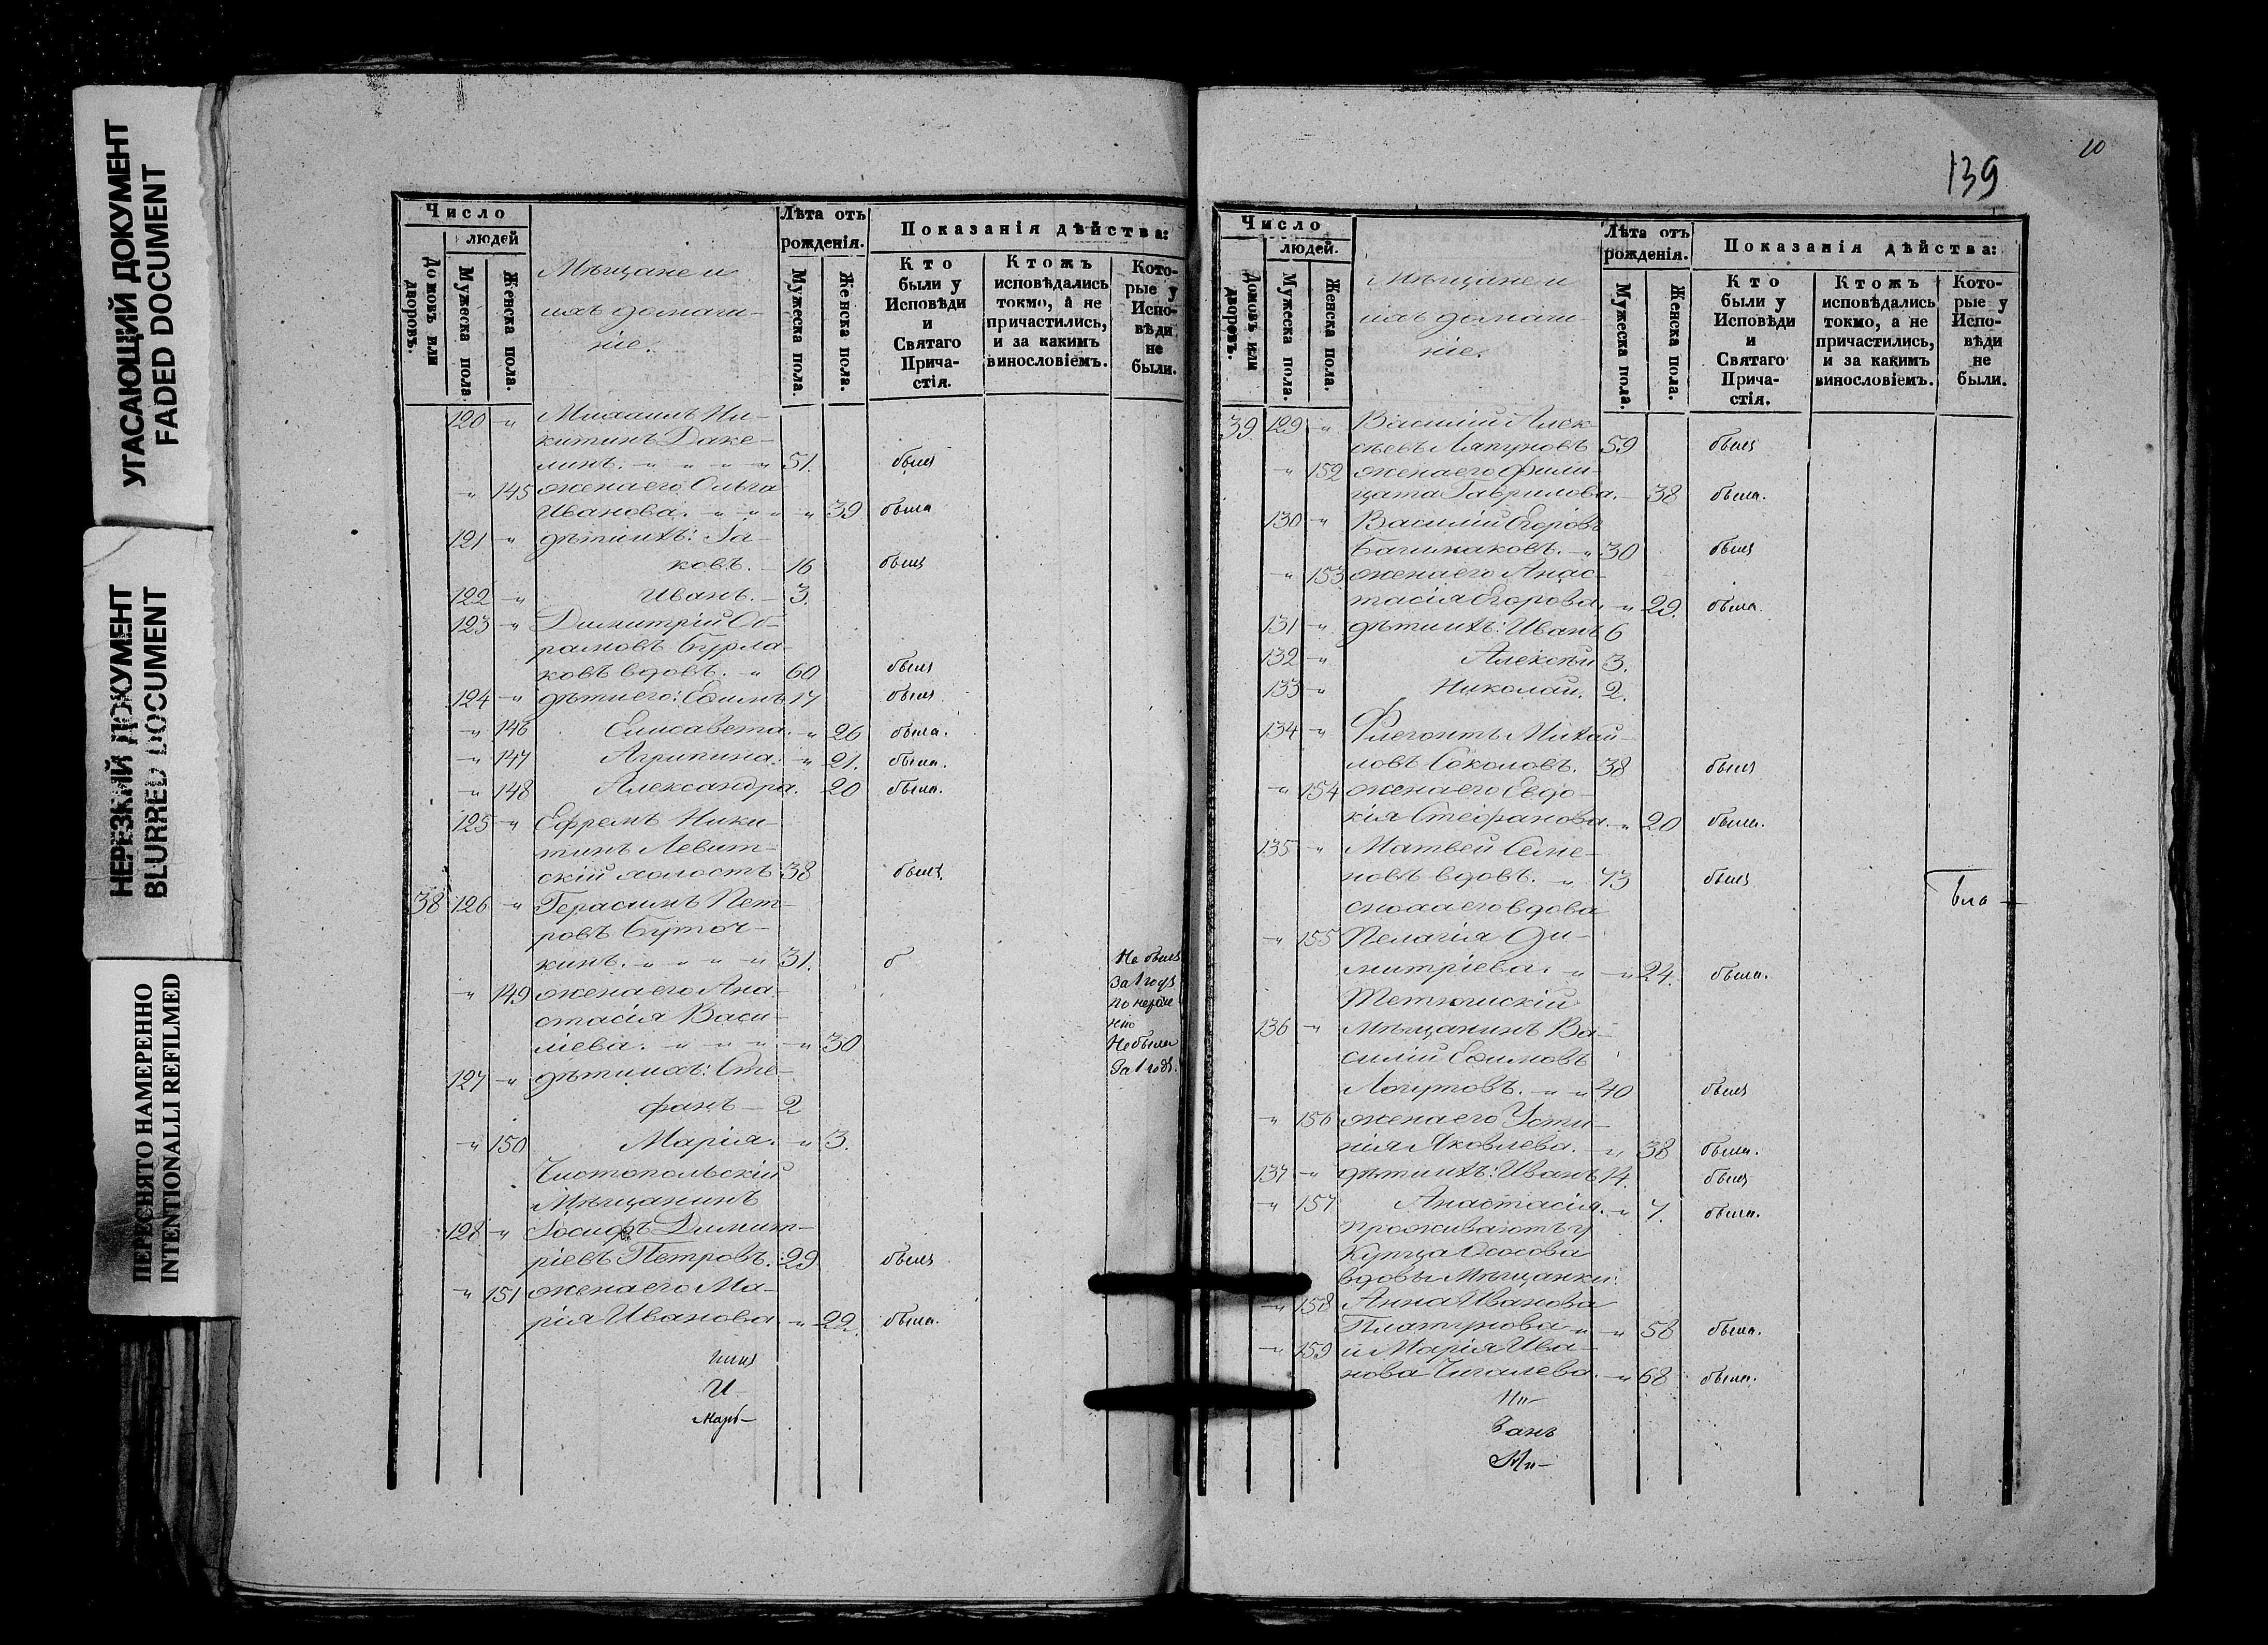 УГАСАЮЩИЙ ДОКУМЕНТ
FADED DOCUMENT
НЕРЕЗКИЙ ДОКУМЕНТ
BLURRED DOCUMENT
ПЕРЕСНЯТО НАМЕРЕННО
INTENTIONALLI REFILMED
Число
людей
Домовъ или дворовъ.
Мужеска пола
Женска пола.
Мѣщане и
ихъ домаш-
ніе.
Лѣта отъ
рожденія.
Мужеска пола
Женска пола.
Показанія дѣйства:
Кто были у Исповѣди и Святаго Прича-стія.
Ктожъ исповѣдались токмо, а не причастились, и за какимъ винословіемъ.
Кото-рые у Испо-вѣди не были.
120 -"- Михаилъ Ни-
китинъ Даке-
линъ. 51. былъ
-"- 145 жена его Ольга
Иванова. 39 была
121 -"- дѣти ихъ: Іа-
ковъ. 16 былъ
122 -"- Иванъ. 3.
123 -"- Димитрій Аб-
рамовъ Бурла-
ковъ вдовъ. 60 былъ
124 -"- дѣти его: Ефимъ 17 былъ
-"- 146 Елисавета. 26 была.
-"- 147 Агрипина. 21. была.
-"- 148 Александра. 20 была.
125 -"- Ефремъ Ники-
тинъ Левит-
скій холостъ 38 былъ.
38 126 -"- Герасимъ Пет-
ровъ Буточ-
кинъ. 31. б Не былъ
-"- 149 жена его Ана- за 1 годъ
стасія Васи-
ліева. 30 Не была
127 -"- дѣти ихъ: Сте- за 1 годъ.
фанъ 2
-"- 150 Марія. 3.
Чистопольскій
Мѣщанинъ
128 -"- Іосифъ Димит-
ріевъ Петровъ. 29 былъ
-"- 151 жена его Ма-
рія Иванова. 22. была.
И-
10
139
Число
людей.
Домовъ или дворовъ.
Мужеска пола.
Женска пола.
Мѣщане и
ихъ домаш-
ніе.
Лѣта отъ
рожденія.
Мужеска пола.
Женска пола.
Показанія дѣйства:
Кто были у Исповѣди и Святаго Прича-стія.
Ктожъ исповѣдались токмо, а не причастились, и за какимъ винословіемъ.
Кото-рые у Испо-вѣди не были.
39. 129 -"- Василій Алек-
сѣевъ Ляпуновъ 59 былъ
-"- 152 жена его Фили-
цата Гаврилова. 38 была.
130 -"- Василій Егоровъ
Башмаковъ. 30 былъ
-"- 153 жена его Анас-
тасія Егорова. 29. была.
131 -"- дѣти ихъ: Иванъ 6
132 -"- Алексѣй 3.
133 -"- Николай. 2.
134 -"- Флегонтъ Михай-
ловъ Соколовъ. 38 былъ
-"- 154 жена его Евдо-
кія Стефанова. 20 была.
135 -"- Матвей Семе-
новъ вдовъ. 73 былъ
сноха его вдова
-"- 155 Пелагія Ди-
митріева. 24. была.
Тетюшскій
136 -"- Мѣщанинъ Ва-
силій Ефимовъ
Логутовъ. 40 былъ
-"- 156 жена его Усти-
нія Яковлева. 38 была.
137 -"- дѣти ихъ: Иванъ 14. былъ
-"- 157 Анастасія. 7. была.
Проживаютъ у
Купца Ососова
вдовы Мѣщанки:
-"- 158 Анна Иванова
Платунова 58 была.
-"- 159 и Марія Ива-
нова Чигалева. 68 была.
Ми-